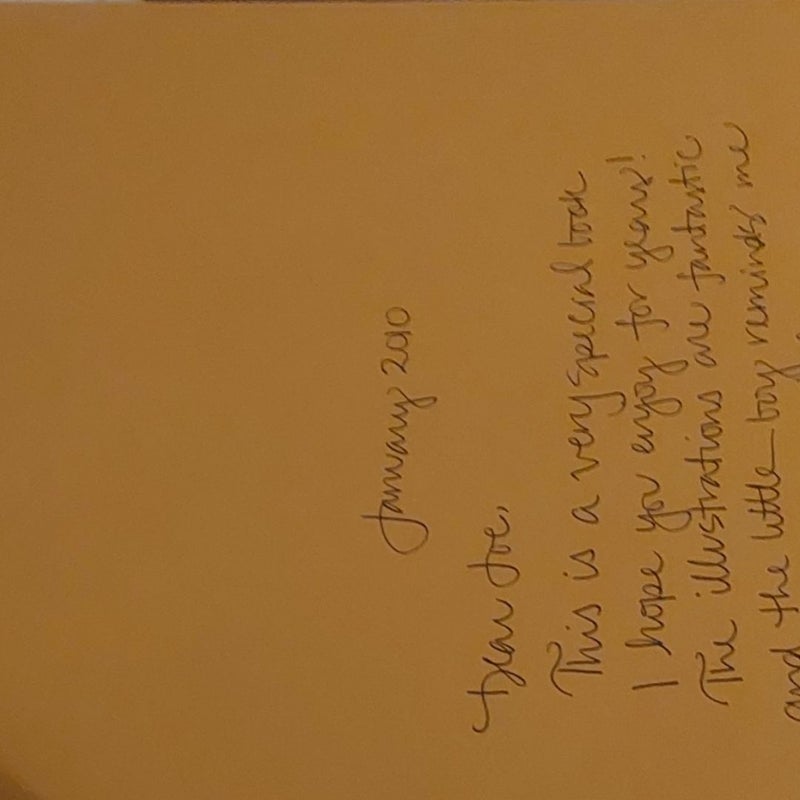 January 2010
Dear Joe,
This is a very special book
I hope you enjoy for years!
The illustrations are fantastic
and the little boy reminds me